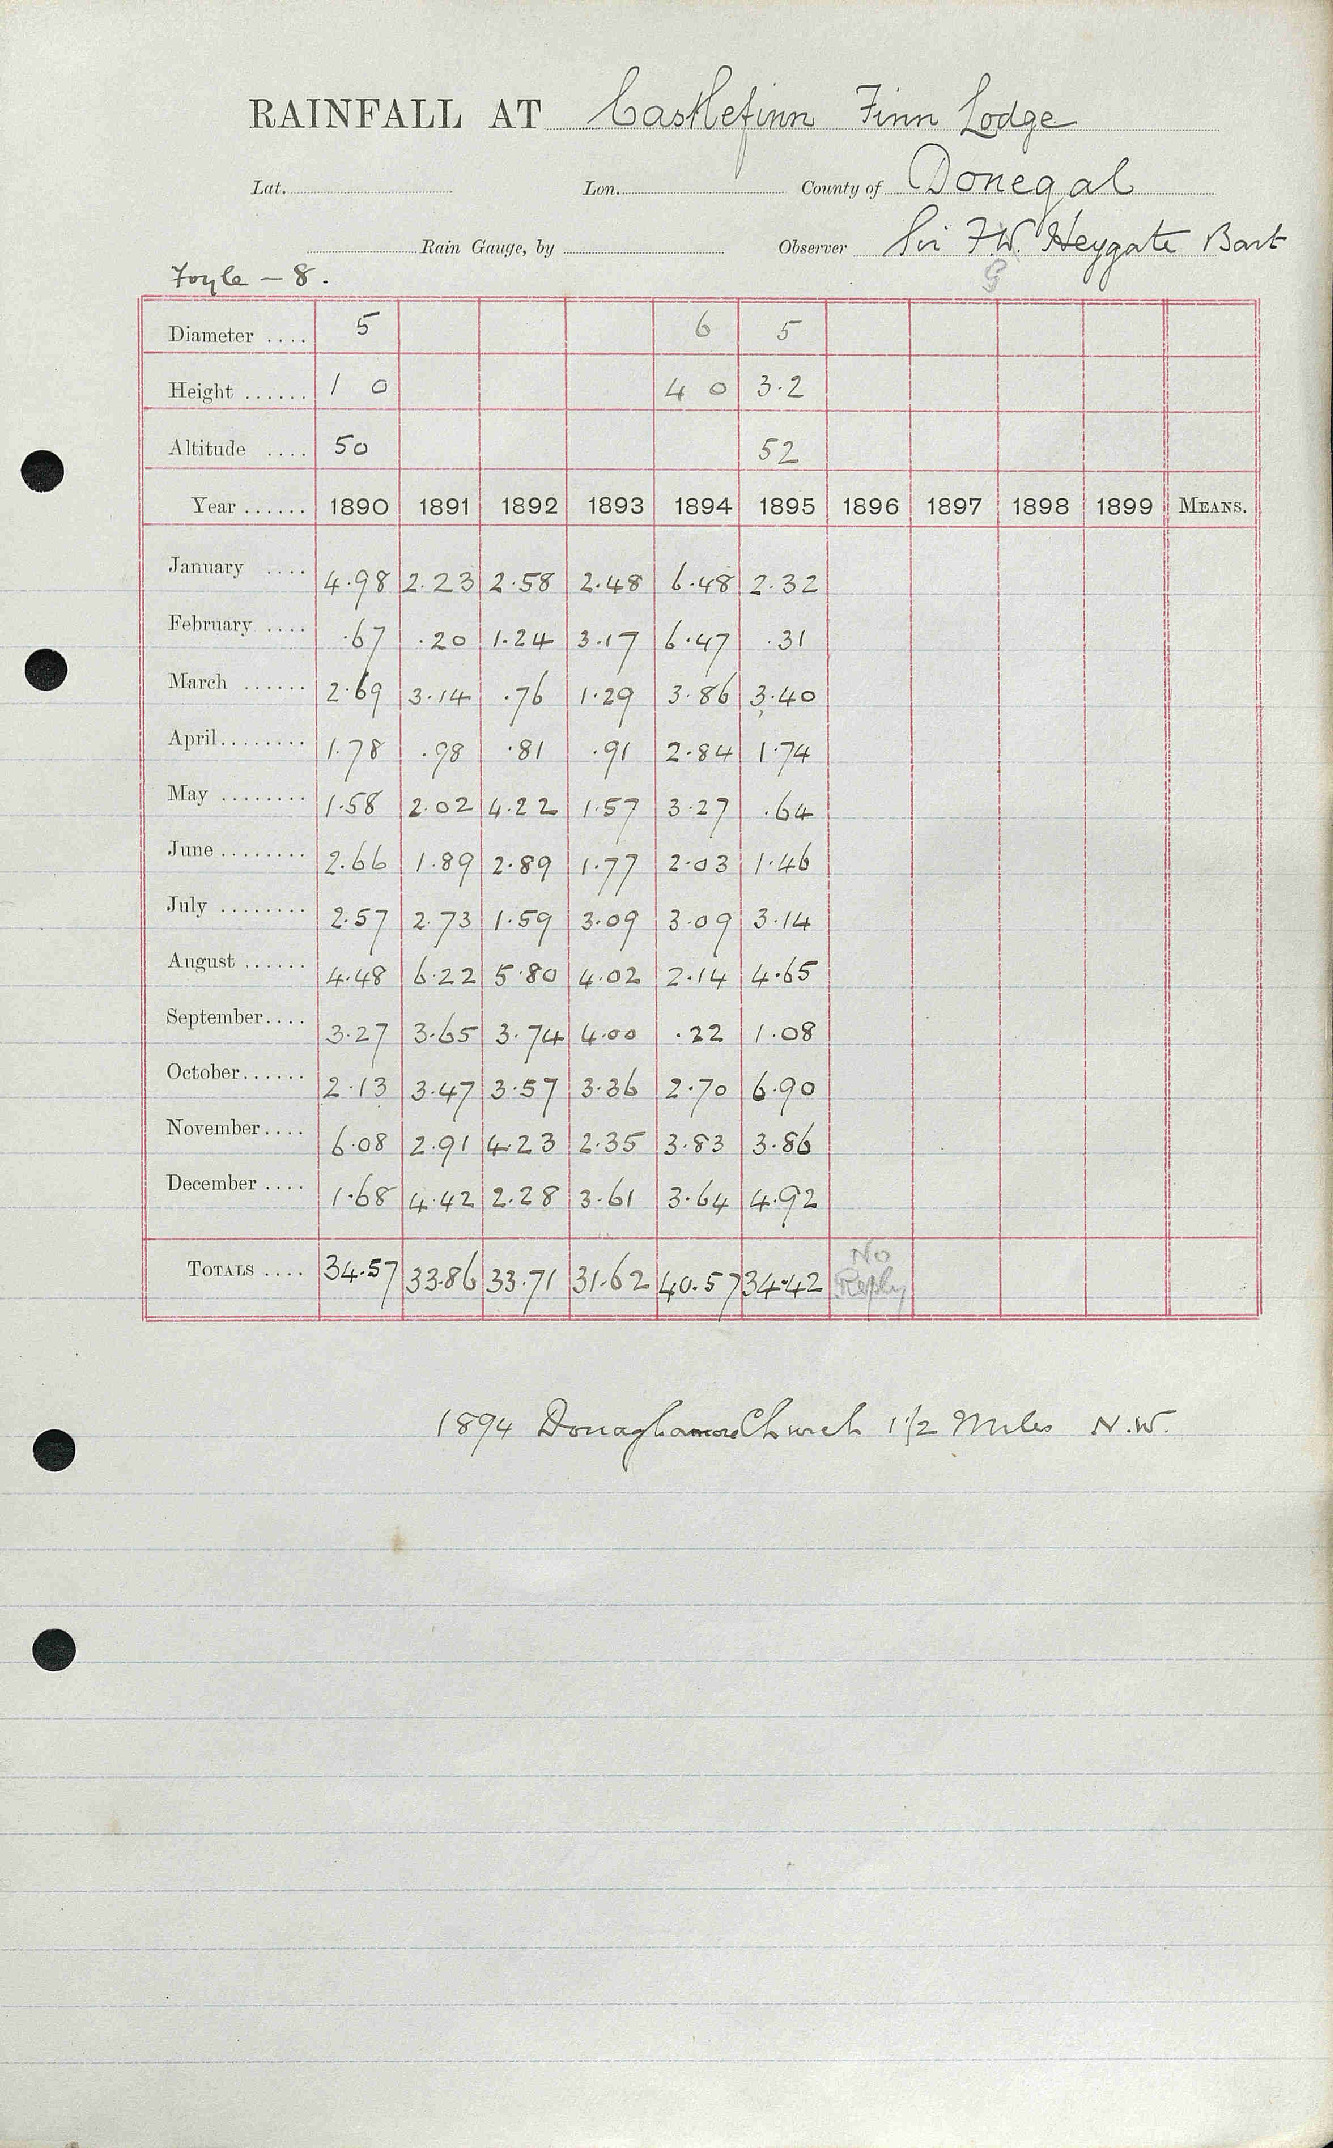 RAINFALL AT Castlefinn Finn Lodge
Lat. Lon. County of Donegal
Rain Gauge, by Observer Sir F.W. Heygate Bart
G
Foyle - 8.
Diameter .... 5 6 5
Height ...... 1 0 4 0 3.2
Altitude .... 50 52
Year ...... 1890 1891 1892 1893 1894 1895 1896 1897 1898 1899 MEANS.
January .... 4.98 2.23 2.58 2.48 6.48 2.32
February .... .67 .20 1.24 3.17 6.47 .31
March ...... 2.69 3.14 .76 1.29 3.86 3.40
April........ 1.78 .98 .81 .91 2.84 1.74
May ........ 1.58 2.02 4.22 1.57 3.27 .64
June ........ 2.66 1.89 2.89 1.77 2.03 1.46
July ........ 2.57 2.73 1.59 3.09 3.09 3.14
August ...... 4.48 6.22 5.80 4.02 2.14 4.65
September.... 3.27 3.65 3.74 4.00 .22 1.08
October...... 2.13 3.47 3.57 3.36 2.70 6.90
November.... 6.08 2.91 4.23 2.35 3.83 3.86
December .... 1.68 4.42 2.28 3.61 3.64 4.92
TOTALS .... 34.57 33.86 33.71 31.62 40.57 34.42 No Reply
1894 Donaghmore Church 1 1/2 Miles N.W.